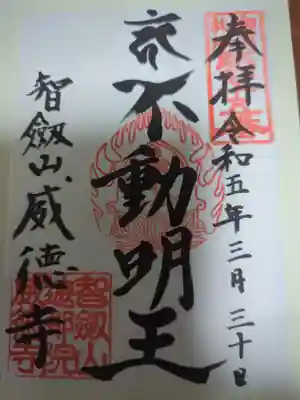 奉拝 令和五年三月三十日
不動明王
智劔山威徳寺